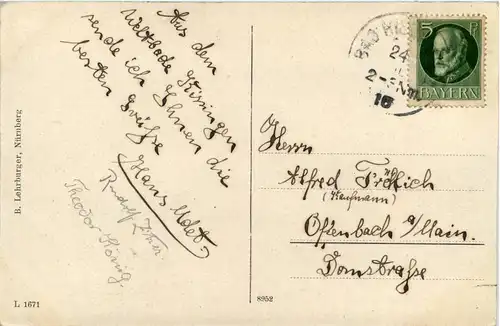 Aus dem
Weltbade Kissingen
sende ich Ihnen die
besten Grüße
Hans Udet.
Rudolf
Theodor König
B. Lehrburger, Nürnberg
L 1671
8952
BAD KIS
24
2-3Nm.
16
5 PF
BAYERN
Herrn
Alfred Fröhlich
(Kaufmann)
Offenbach a/Main.
Domstraße